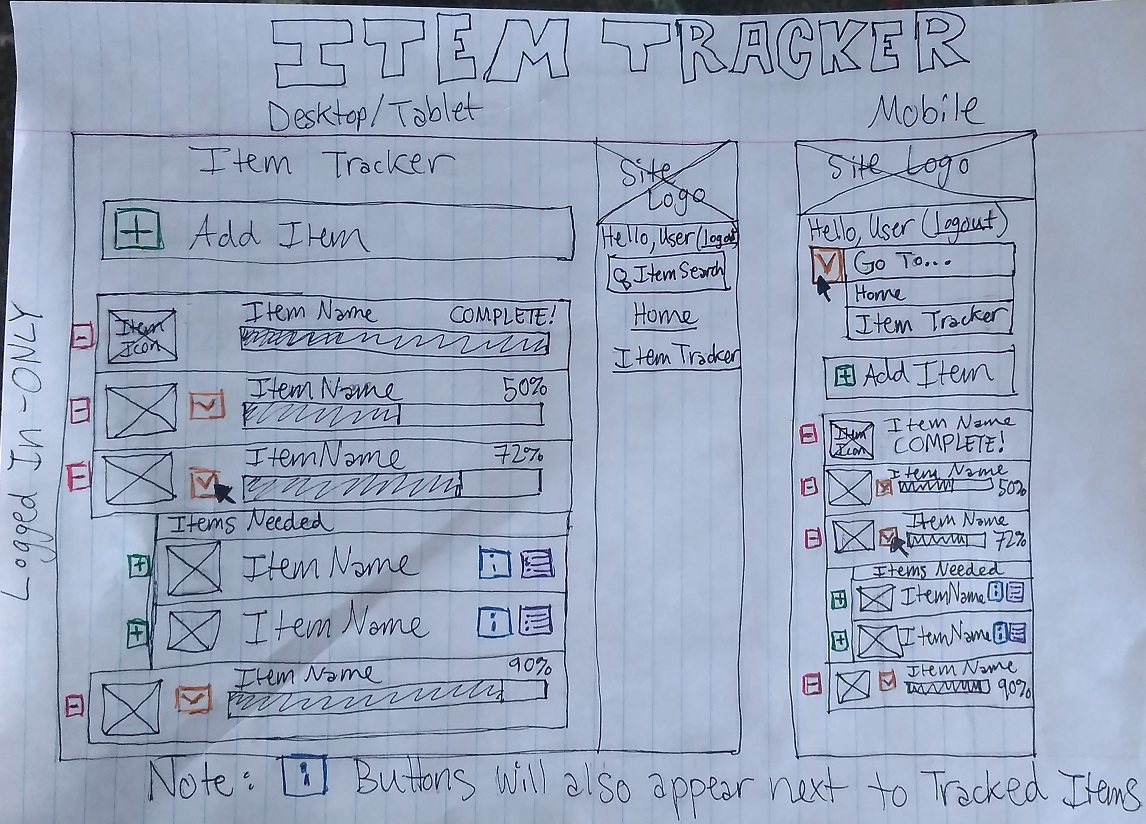 ITEM TRACKER
Desktop/Tablet
Mobile
Logged In-ONLY
Item Tracker
+ Add Item
Item Icon
Item Name COMPLETE!
Item Name 50%
Item Name 72%
Items Needed
+ Item Name i
+ Item Name i
Item Name 90%
Site
Logo
Hello, User (Logout)
Item Search
Home
Item Tracker
Site Logo
Hello, User (logout)
Go To...
Home
Item Tracker
+ Add Item
Item
Icon
Item Name
COMPLETE!
Item Name
50%
Item Name
72%
Items Needed
+ Item Name i
+ Item Name i
Item Name
90%
Note: i Buttons will also appear next to Tracked Items